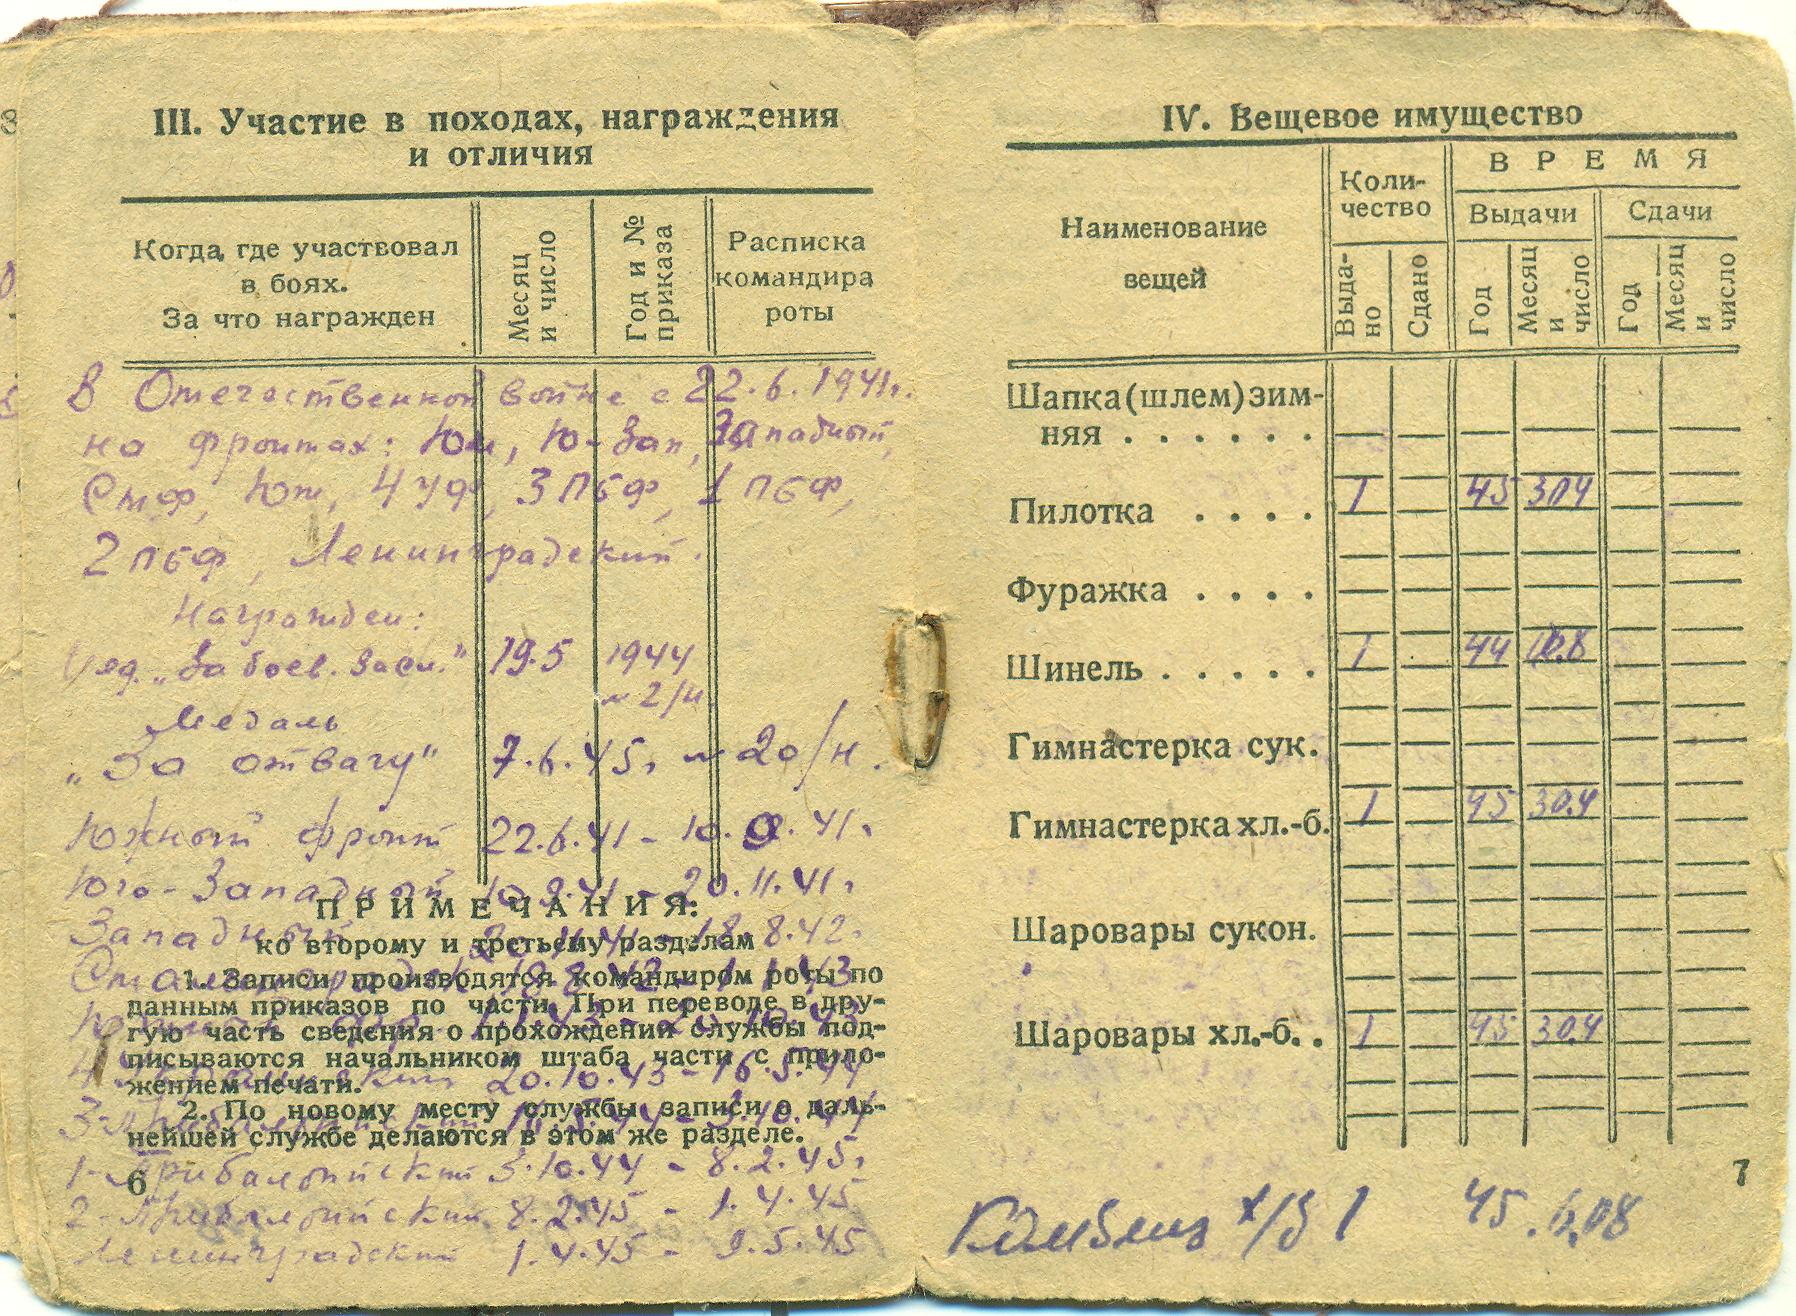 III. Участие в походах, награждения
и отличия
Когда, где участвовал
в боях.
За что награжден
Месяц
и число
Год и №
приказа
Расписка
командира
роты
В Отечественной войне с 22.6.1941г.
на фронтах: Юж, Ю-Зап, Западный,
СтФ, Юж, 4 УФ, 3 ПБФ, 1 ПБФ,
2 ПБФ, Ленинградский.
Награжден:
Мед. „За боев. засл.” 19.5 1944
№ 2/н
Медаль
„За отвагу” 7.6.45г № 20/н.
Южный фронт 22.6.41 - 10. 41г
Юго-Западный 10.9.41 - 20.11.41г
Западный 20.11.41 - 18.8.42.
18.8.42 - 1.1.43
20.10.43 - 16.5.44
3-Прибалтийский 16.5.44 - 3.10.44
1-Прибалтийский 3.10.44 - 8.2.45г
2-Прибалтийский 8.2.45 - 1.4.45
Ленинградский 1.4.45 - 9.5.45
ПРИМЕЧАНИЯ:
ко второму и третьему разделам
1. Записи производятся командиром роты по
данным приказов по части. При переводе в дру-
гую часть сведения о прохождении службы под-
писываются начальником штаба части с прило-
жением печати.
2. По новому месту службы записи о даль-
нейшей службе делаются в этом же разделе.
6
IV. Вещевое имущество
Наименование
вещей
Коли-
чество
ВРЕМЯ
Выдачи
Сдачи
Выда-
но
Сдано
Год
Месяц
и
число
Год
Месяц
и
число
Шапка (шлем) зим-
няя . . . . . .
Пилотка . . . . 1 45 30.4
Фуражка . . . .
Шинель . . . . . 1 44 10.8
Гимнастерка сук.
Гимнастерка хл.-б. 1 45 30.4
Шаровары сукон.
Шаровары хл.-б. . 1 45 30.4
7
х/б 1 45